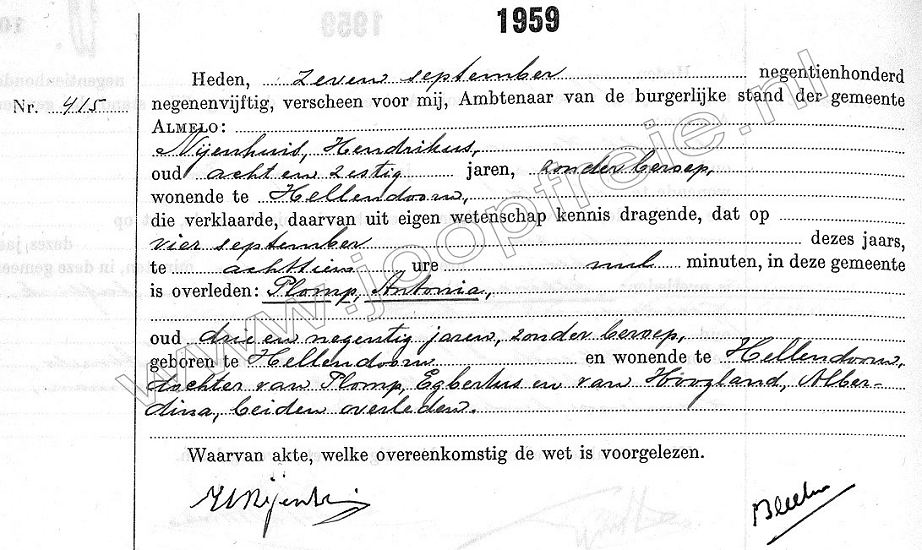 1959
Heden, zeven september negentienhonderd
Nr. 415. negenenvijftig, verscheen voor mij, Ambtenaar van de burgerlijke stand der gemeente
ALMELO:
Nijenhuis, Hendrikus,
oud acht en zestig jaren, zonder beroep,
wonende te Hellendoorn,
die verklaarde, daarvan uit eigen wetenschap kennis dragende, dat op
vier september dezes jaars,
te achttien ure nul minuten, in deze gemeente
is overleden: Plomp, Antonia,
oud drie en negentig jaren, zonder beroep,
geboren te Hellendoorn en wonende te Hellendoorn,
dochter van Plomp, Egbertus en van Hoogland, Alber-
dina, beiden overleden.
Waarvan akte, welke overeenkomstig de wet is voorgelezen.
www.joopfreie.nl